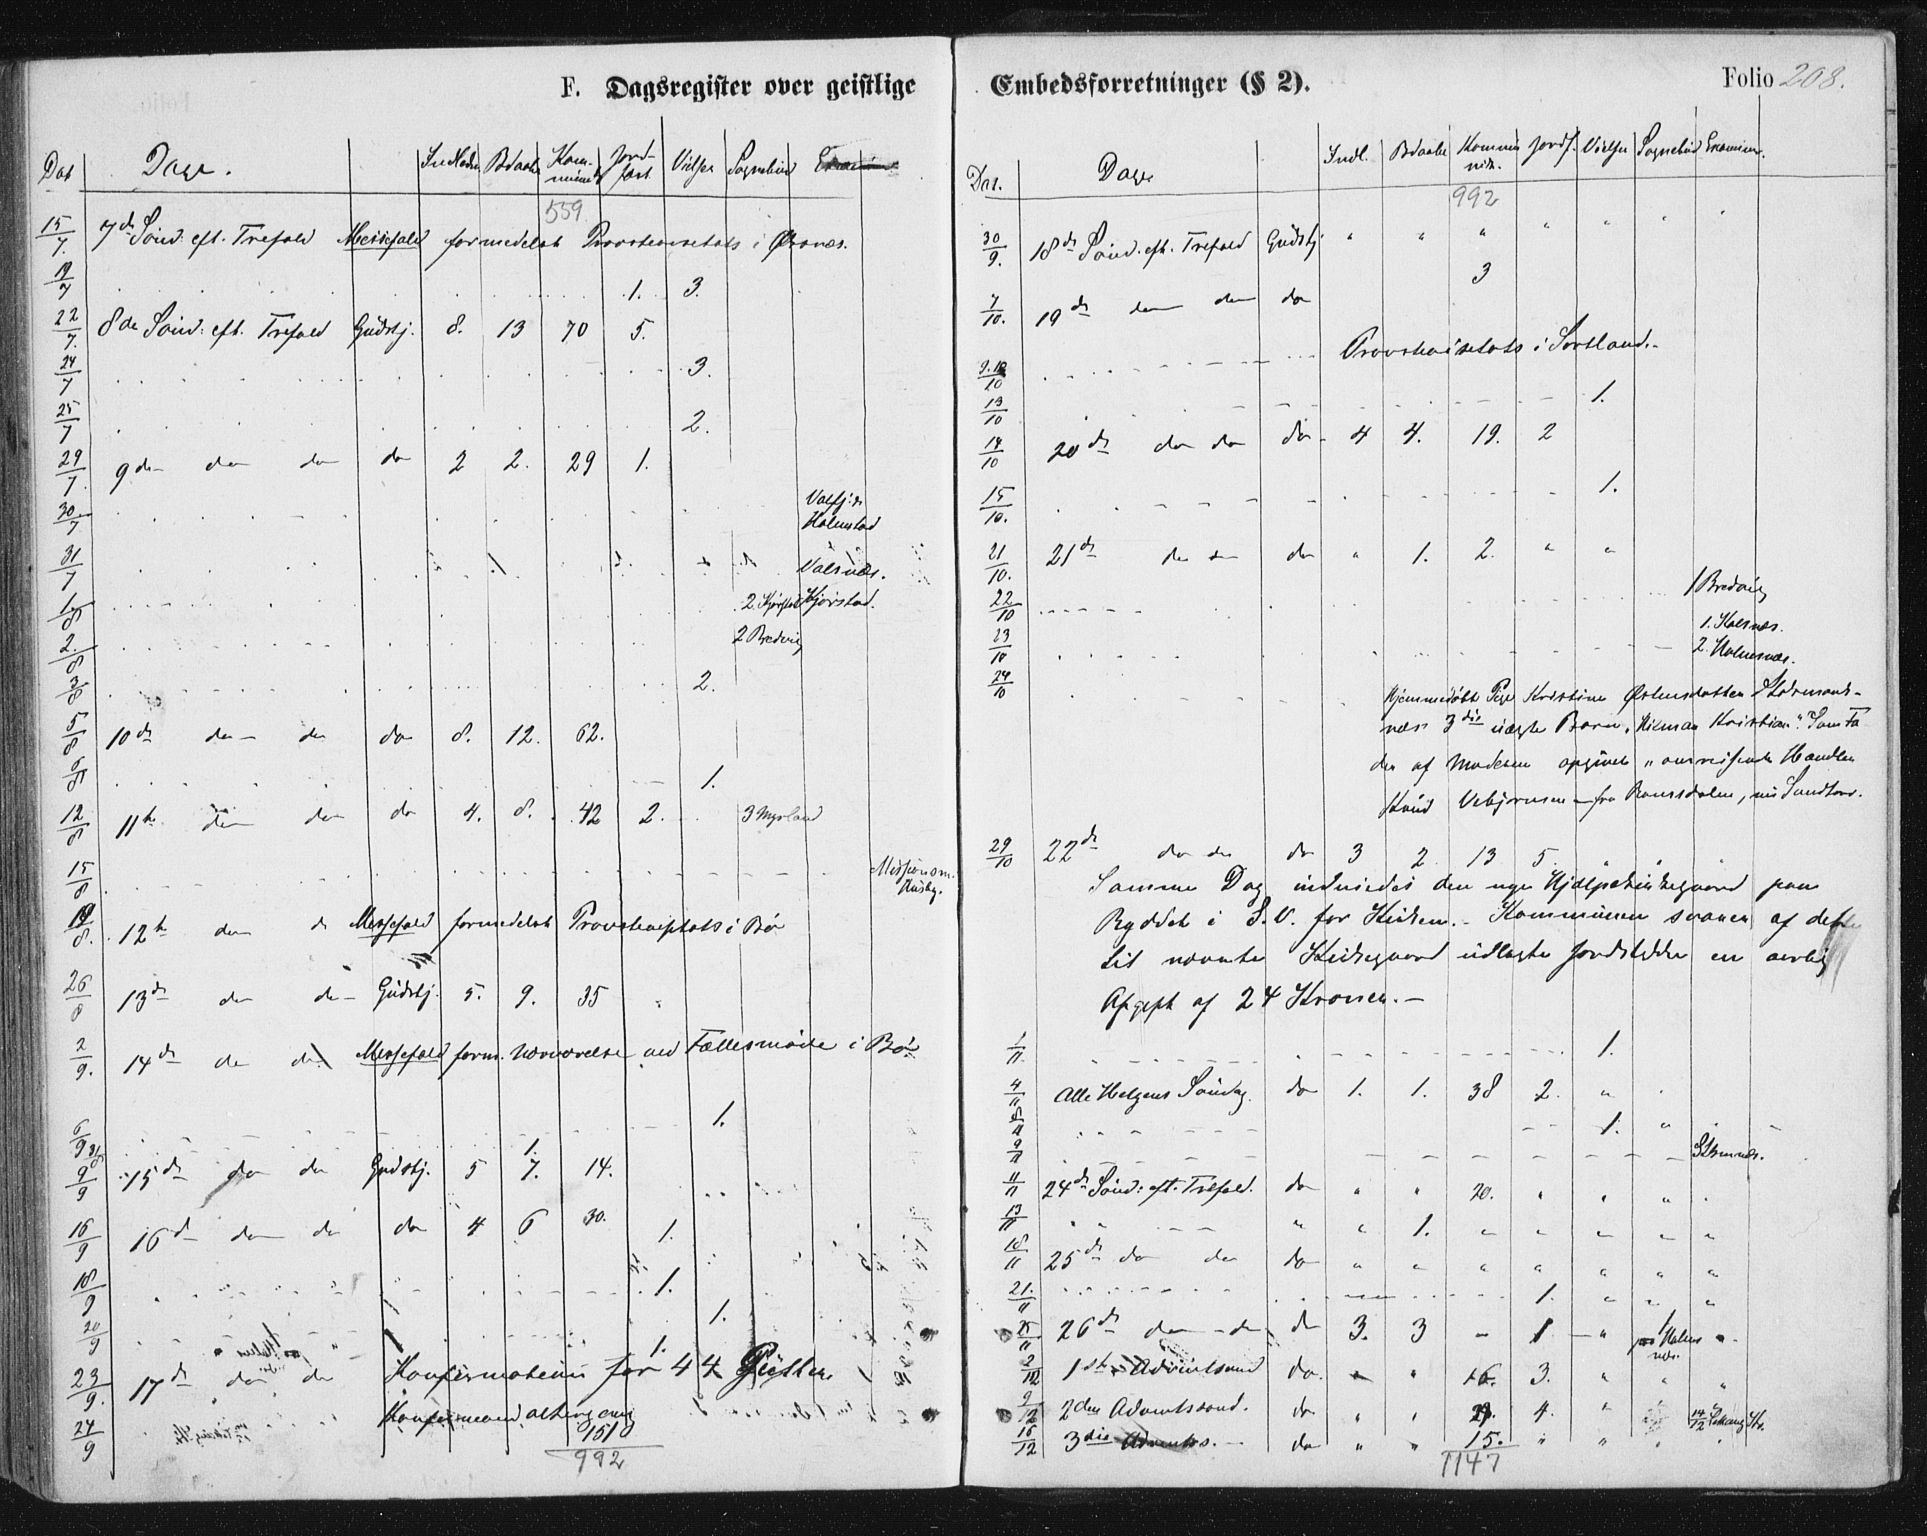 F. Dagsregister over geistlige
Dat Dage. Indleden Bdaab Kom-munik Jord-fæst Vielser Sognebud
559
15/7. 7de Sönd. eft. Trefold Messefald formedelst Provstevisetats i Øxnæs.
19/7 1. 3.
22/7. 8de Sönd. eft. Trefold Gudstj. 8. 13 70 5.
24/7 3.
25/7 2.
29/7. 9de do do do 2 2. 29 1.
30/7 Valfj:
Holmstad
31/7 Valsnæs.
1/8 2 Kjørstad Kjørstad.
2/8 2 Bredvig
3/8 2.
5/8 10de do do do 8. 12. 62.
6/8 1.
12/8 11te do do do 4. 8. 42 2. 3 Myrland
15/8 Missionsm.
Husby.
19/8. 12te do do Messefald formedelst Provstevisetats i Bø
26/8 13de do do Gudstj. 5. 9. 35
2/9. 14de do do Messefald form. Nærværelse ved Fællesmöde i Bø
6/9 1.
1.
9/9 15de do do Gudstj. 5 7. 14.
16/9 16de do do do 4 6 30. 1.
18/9 1.
20/9 1.
1.
23/9. 17de do do Konfirmation for 44 Gutter
24/9 151
992
Embedsforretninger (§ 2).
Folio 208.
Dat. Dage Indl. Bdaabe Kommunik. Jordf. Vielser Sognebud Examiner.
992
30/9. 18de Sönd. eft. Trefold Gudstj. " " " " " " "
7/10. 19de do do do 3
9.10/10 Provstevisetats i Sortland.-
13/10 1.
14/10 20de do do do 4 4. 19. 2
15/10. 1.
21/10. 21de do do do " 1. 2. " "
22/10 1 Bredvig
23/10 1. Kalsnæs.
2. Holmsnæs.
24/10 Hjemmedöbt Pige Kristine Østensdatter Stormands-
næs 3die uægte Barn, Hilmar Kristian". Som Fa
der af Moderen opgivet " omreisende Handler
Knud Vebjørnsen fra Romsdalen,
29/10 22de do do do 3 2 13 5.
Samme Dag indviedes den nye Hjælpekirkegaard paa
Ryddet i S.V. for Kirken.- Kommunen svarer af dette
til nævnte Kirkegaard udlagte Jordstykke en aarlig
Afgift af 24 Kroner.-
1/11 1.
4/11 Alle Helgens Søndag. do 1. 1. 38 2. "
8/11 1. "
9/11
11/11 24de Sönd: eft. Trefold. do " " 20. " " "
13/11 " " 1. " " " "
18/11 25de do do do " " " " " " "
21/11 1. " " "
25/11 26de do do do 3. 3 - 1 - " 1 Holmsnæs
2/12 1ste Adventssönd do. " " 16. 3. " " "
9/12 2den Adventssönd. do " " 4. "
16/12 3die Advents. do " " 15. " " "
1147